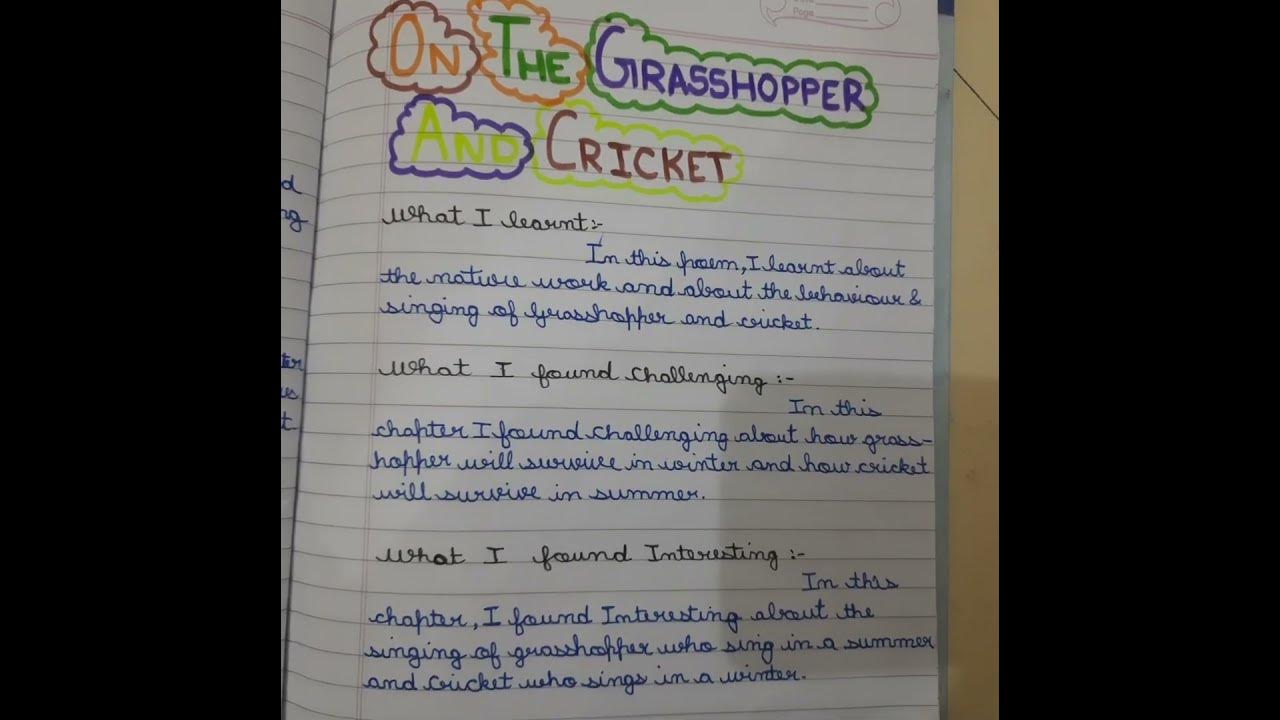 Page
ON THE GRASSHOPPER
AND CRICKET
d
ng
What I learnt:-
In this poem, I learnt about
the nature work and about the behaviour &
singing of Grasshopper and cricket.
ter
us
t
What I found challenging :-
In this
chapter I found challenging about how grass-
hopper will survive in winter and how cricket
will survive in summer.
What I found Interesting :-
In this
chapter, I found Interesting about the
singing of grasshopper who sing in a summer
and cricket who sings in a winter.